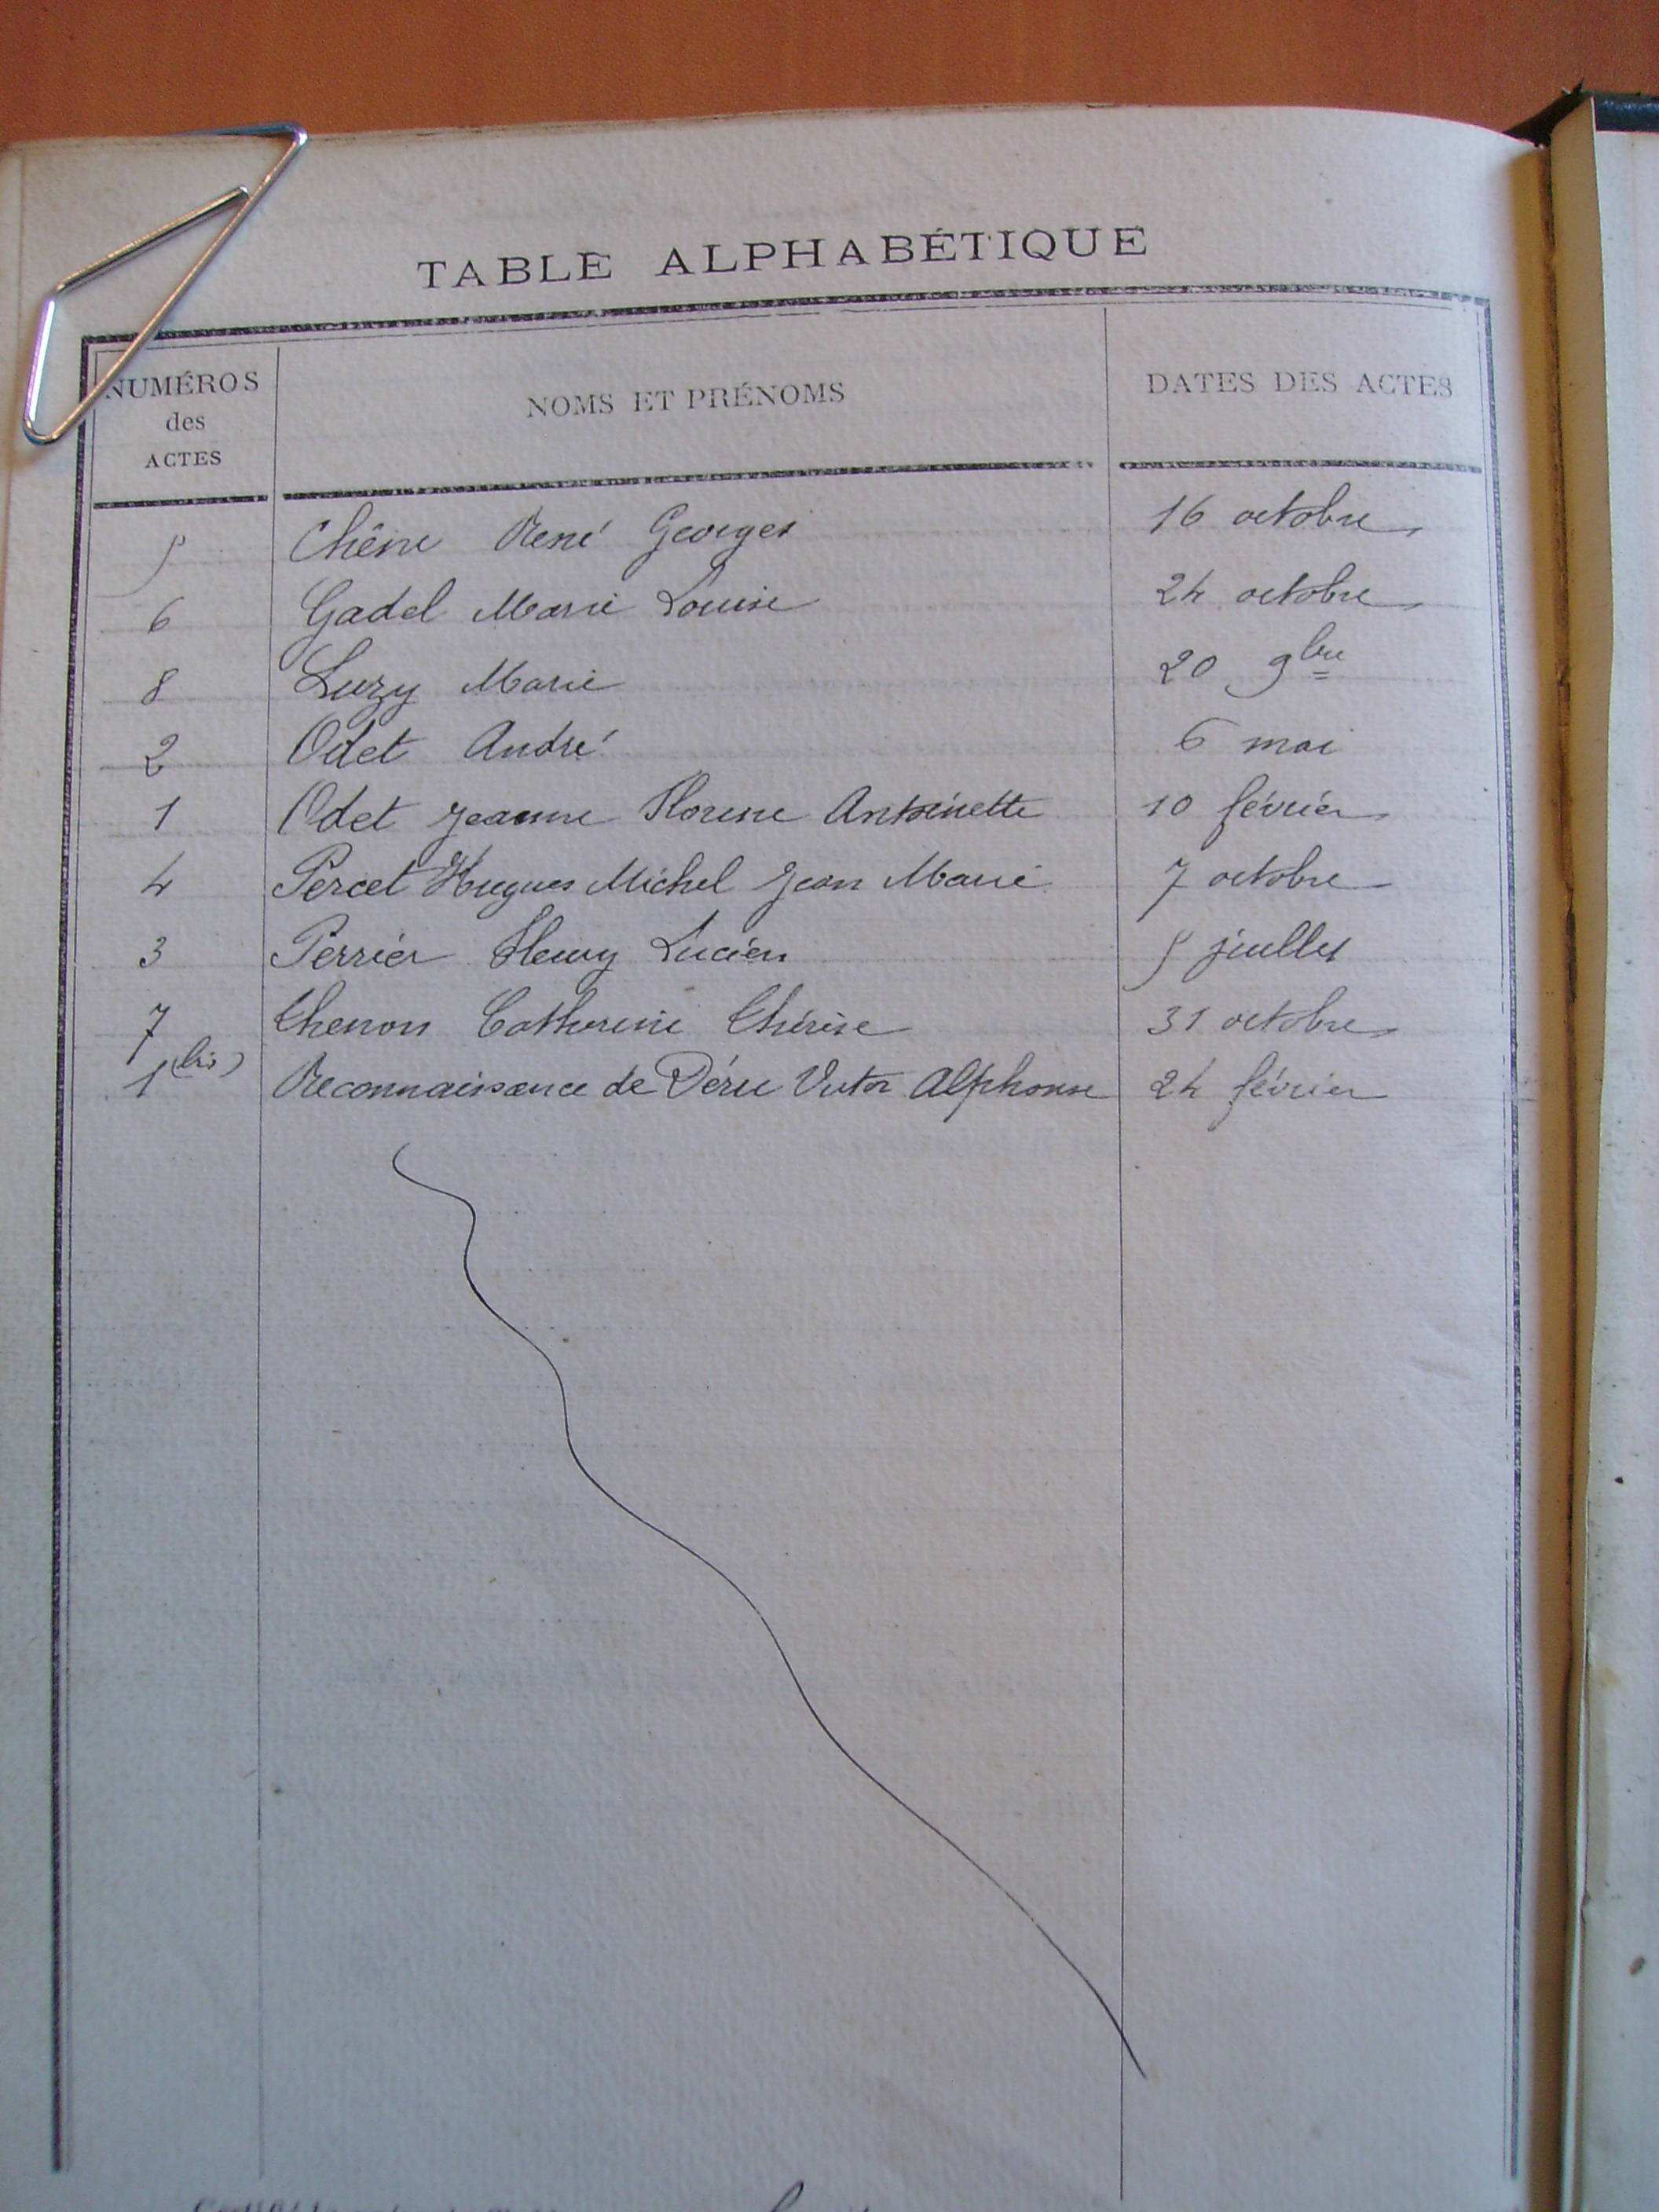 TABLE ALPHABÉTIQUE
NUMÉROS des ACTES NOMS ET PRÉNOMS DATES DES ACTES
5 Chêne René Georges 16 octobre
6 Gadel Marie Louise 24 octobre
8 Luzy Marie 20 9bre
2 Odet André 6 mai
1 Odet Jeanne Florine Antoinette 10 février
4 Percet Hugues Michel Jean Marie 7 octobre
3 Perrier Fleury Lucien 5 juillet
7 Thenon Catherine Thérèse 31 octobre
1 (bis) Reconnaissance de Déru Victor Alphonse 24 février